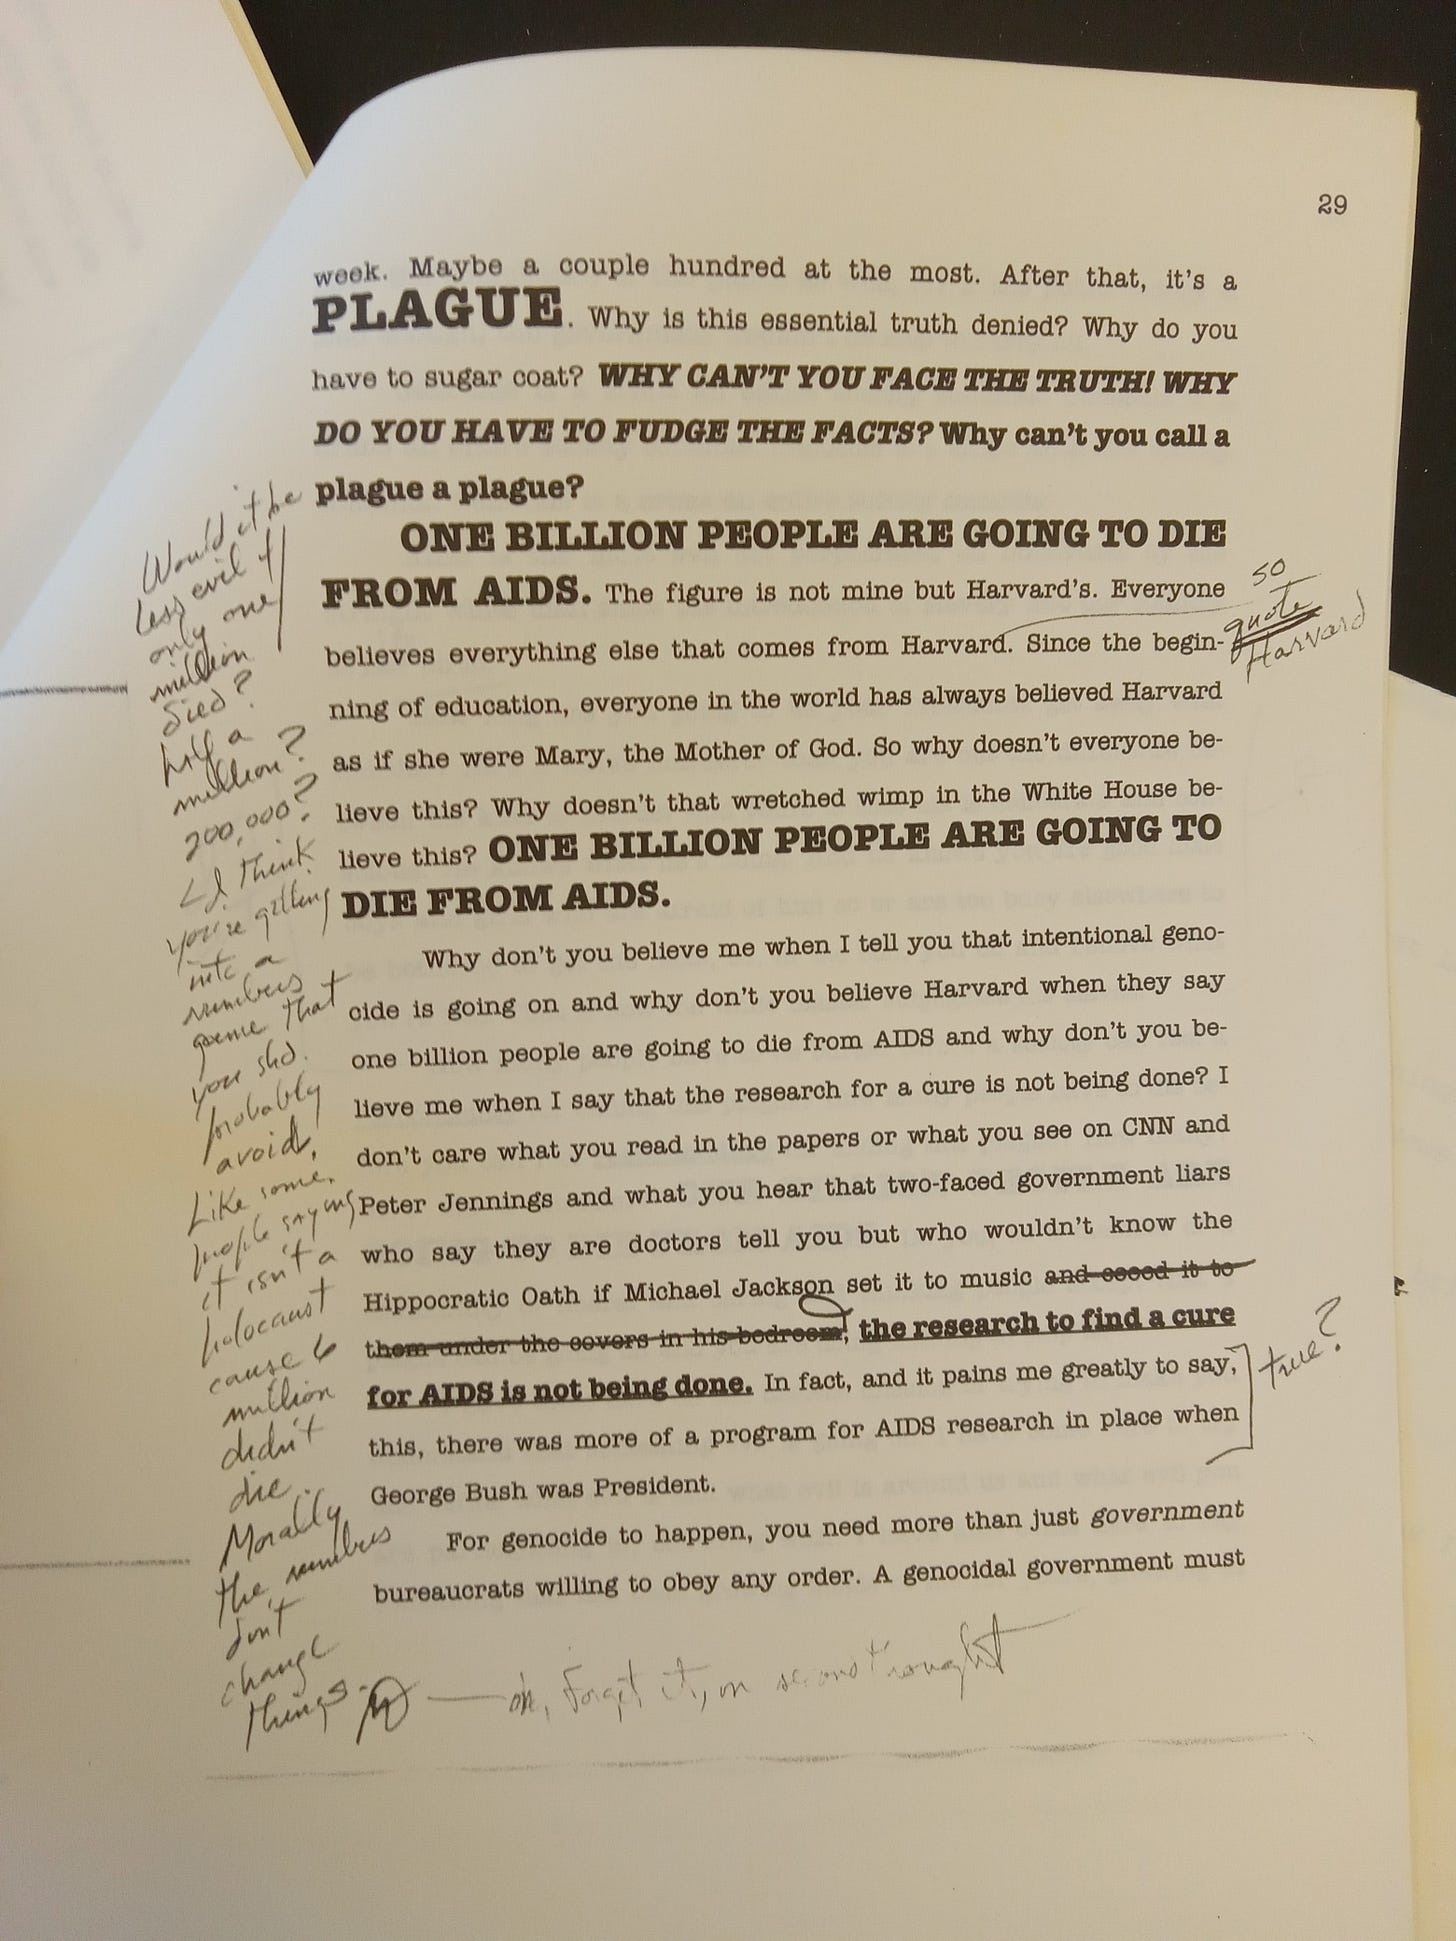 29
week. Maybe a couple hundred at the most. After that, it's a
PLAGUE. Why is this essential truth denied? Why do you
have to sugar coat? WHY CAN'T YOU FACE THE TRUTH! WHY
DO YOU HAVE TO FUDGE THE FACTS? Why can't you call a
plague a plague?
ONE BILLION PEOPLE ARE GOING TO DIE
FROM AIDS. The figure is not mine but Harvard's. Everyone
believes everything else that comes from Harvard. Since the begin-
ning of education, everyone in the world has always believed Harvard
as if she were Mary, the Mother of God. So why doesn't everyone be-
lieve this? Why doesn't that wretched wimp in the White House be-
lieve this? ONE BILLION PEOPLE ARE GOING TO
DIE FROM AIDS.
Why don't you believe me when I tell you that intentional geno-
cide is going on and why don't you believe Harvard when they say
one billion people are going to die from AIDS and why don't you be-
lieve me when I say that the research for a cure is not being done? I
don't care what you read in the papers or what you see on CNN and
Peter Jennings and what you hear that two-faced government liars
who say they are doctors tell you but who wouldn't know the
Hippocratic Oath if Michael Jackson set it to music and cooed it to
them under the covers in his bedroom, the research to find a cure
for AIDS is not being done. In fact, and it pains me greatly to say,
this, there was more of a program for AIDS research in place when
George Bush was President.
For genocide to happen, you need more than just government
bureaucrats willing to obey any order. A genocidal government must
Would it be
less evil if
only one
million
died?
half a
million?
200,000?
I think
you're getting
into a
numbers
game that
you shd.
probably
avoid,
Like some
people saying
it isn't a
holocaust
cause 6
million
didn't
die.
Morally
the numbers
don't
change
things.
oh, forget it, on second thought
so
quote
Harvard
true?